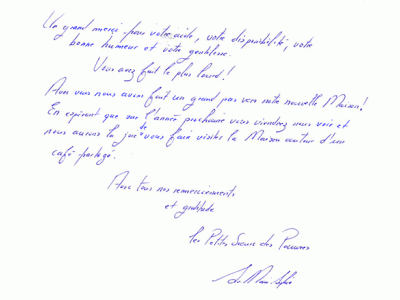 Un grand merci pour votre aide, votre disponibilité, votre
bonne humeur et votre gentillesse.
Vous avez fait le plus lourd !
Avec vous nous avons fait un grand pas vers notre nouvelle Maison !
En espérant que sur l'année prochaine vous viendrez nous voir et
nous aurons la joie de vous faire visiter la Maison autour d'un
café partagé.
Avec tous nos remerciements
et gratitude
les Petites Sœurs des Pauvres